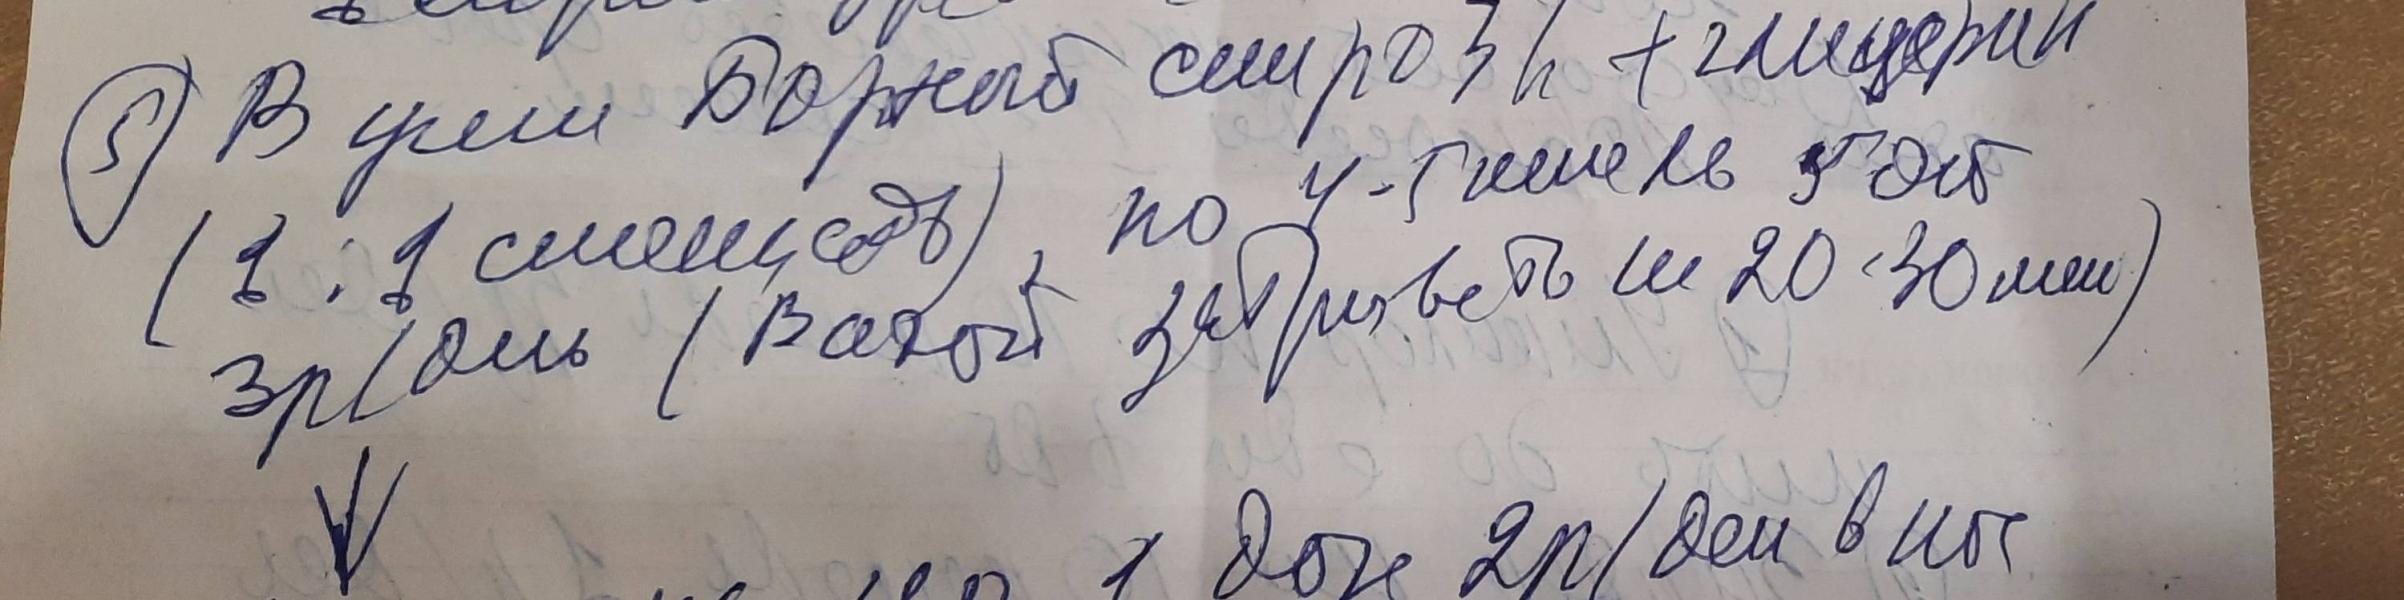 5) В уши Борный спирт 3% + глицерин
(1:1 смешать), по 4-5 капель 5 дней
3р/день (Ватой закрывать на 20-30 мин)
по 1 дозе 2р/день в нос